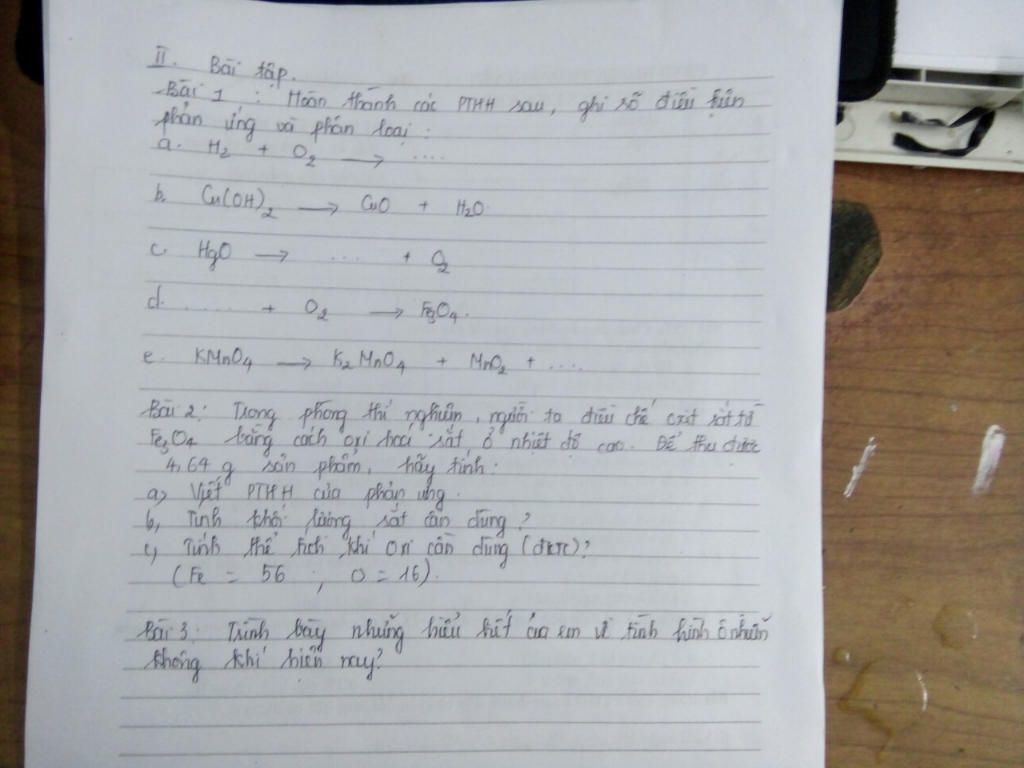 II. Bài tập.
Bài 1 : Hoàn thành các PTHH sau, ghi số điều kiện
phản ứng và phân loại :
a. H₂ + O₂ → ....
b. Cu(OH)₂ → CuO + H₂O
c. HgO → ... + O₂
d. ..... + O₂ → Fe₃O₄.
e. KMnO₄ → K₂MnO₄ + MnO₂ + ....
Bài 2: Trong phòng thí nghiệm, người ta điều chế oxit sắt từ
Fe₃O₄ bằng cách oxi hoá sắt ở nhiệt độ cao. Để thu được
4,64 g sản phẩm, hãy tính:
a, Viết PTHH của phản ứng.
b, Tính khối lượng sắt cần dùng?
c, Tính thể tích khí oxi cần dùng (đktc)?
(Fe = 56 ; O = 16).
Bài 3: Trình bày những hiểu biết của em về tình hình ô nhiễm
không khí hiện nay?